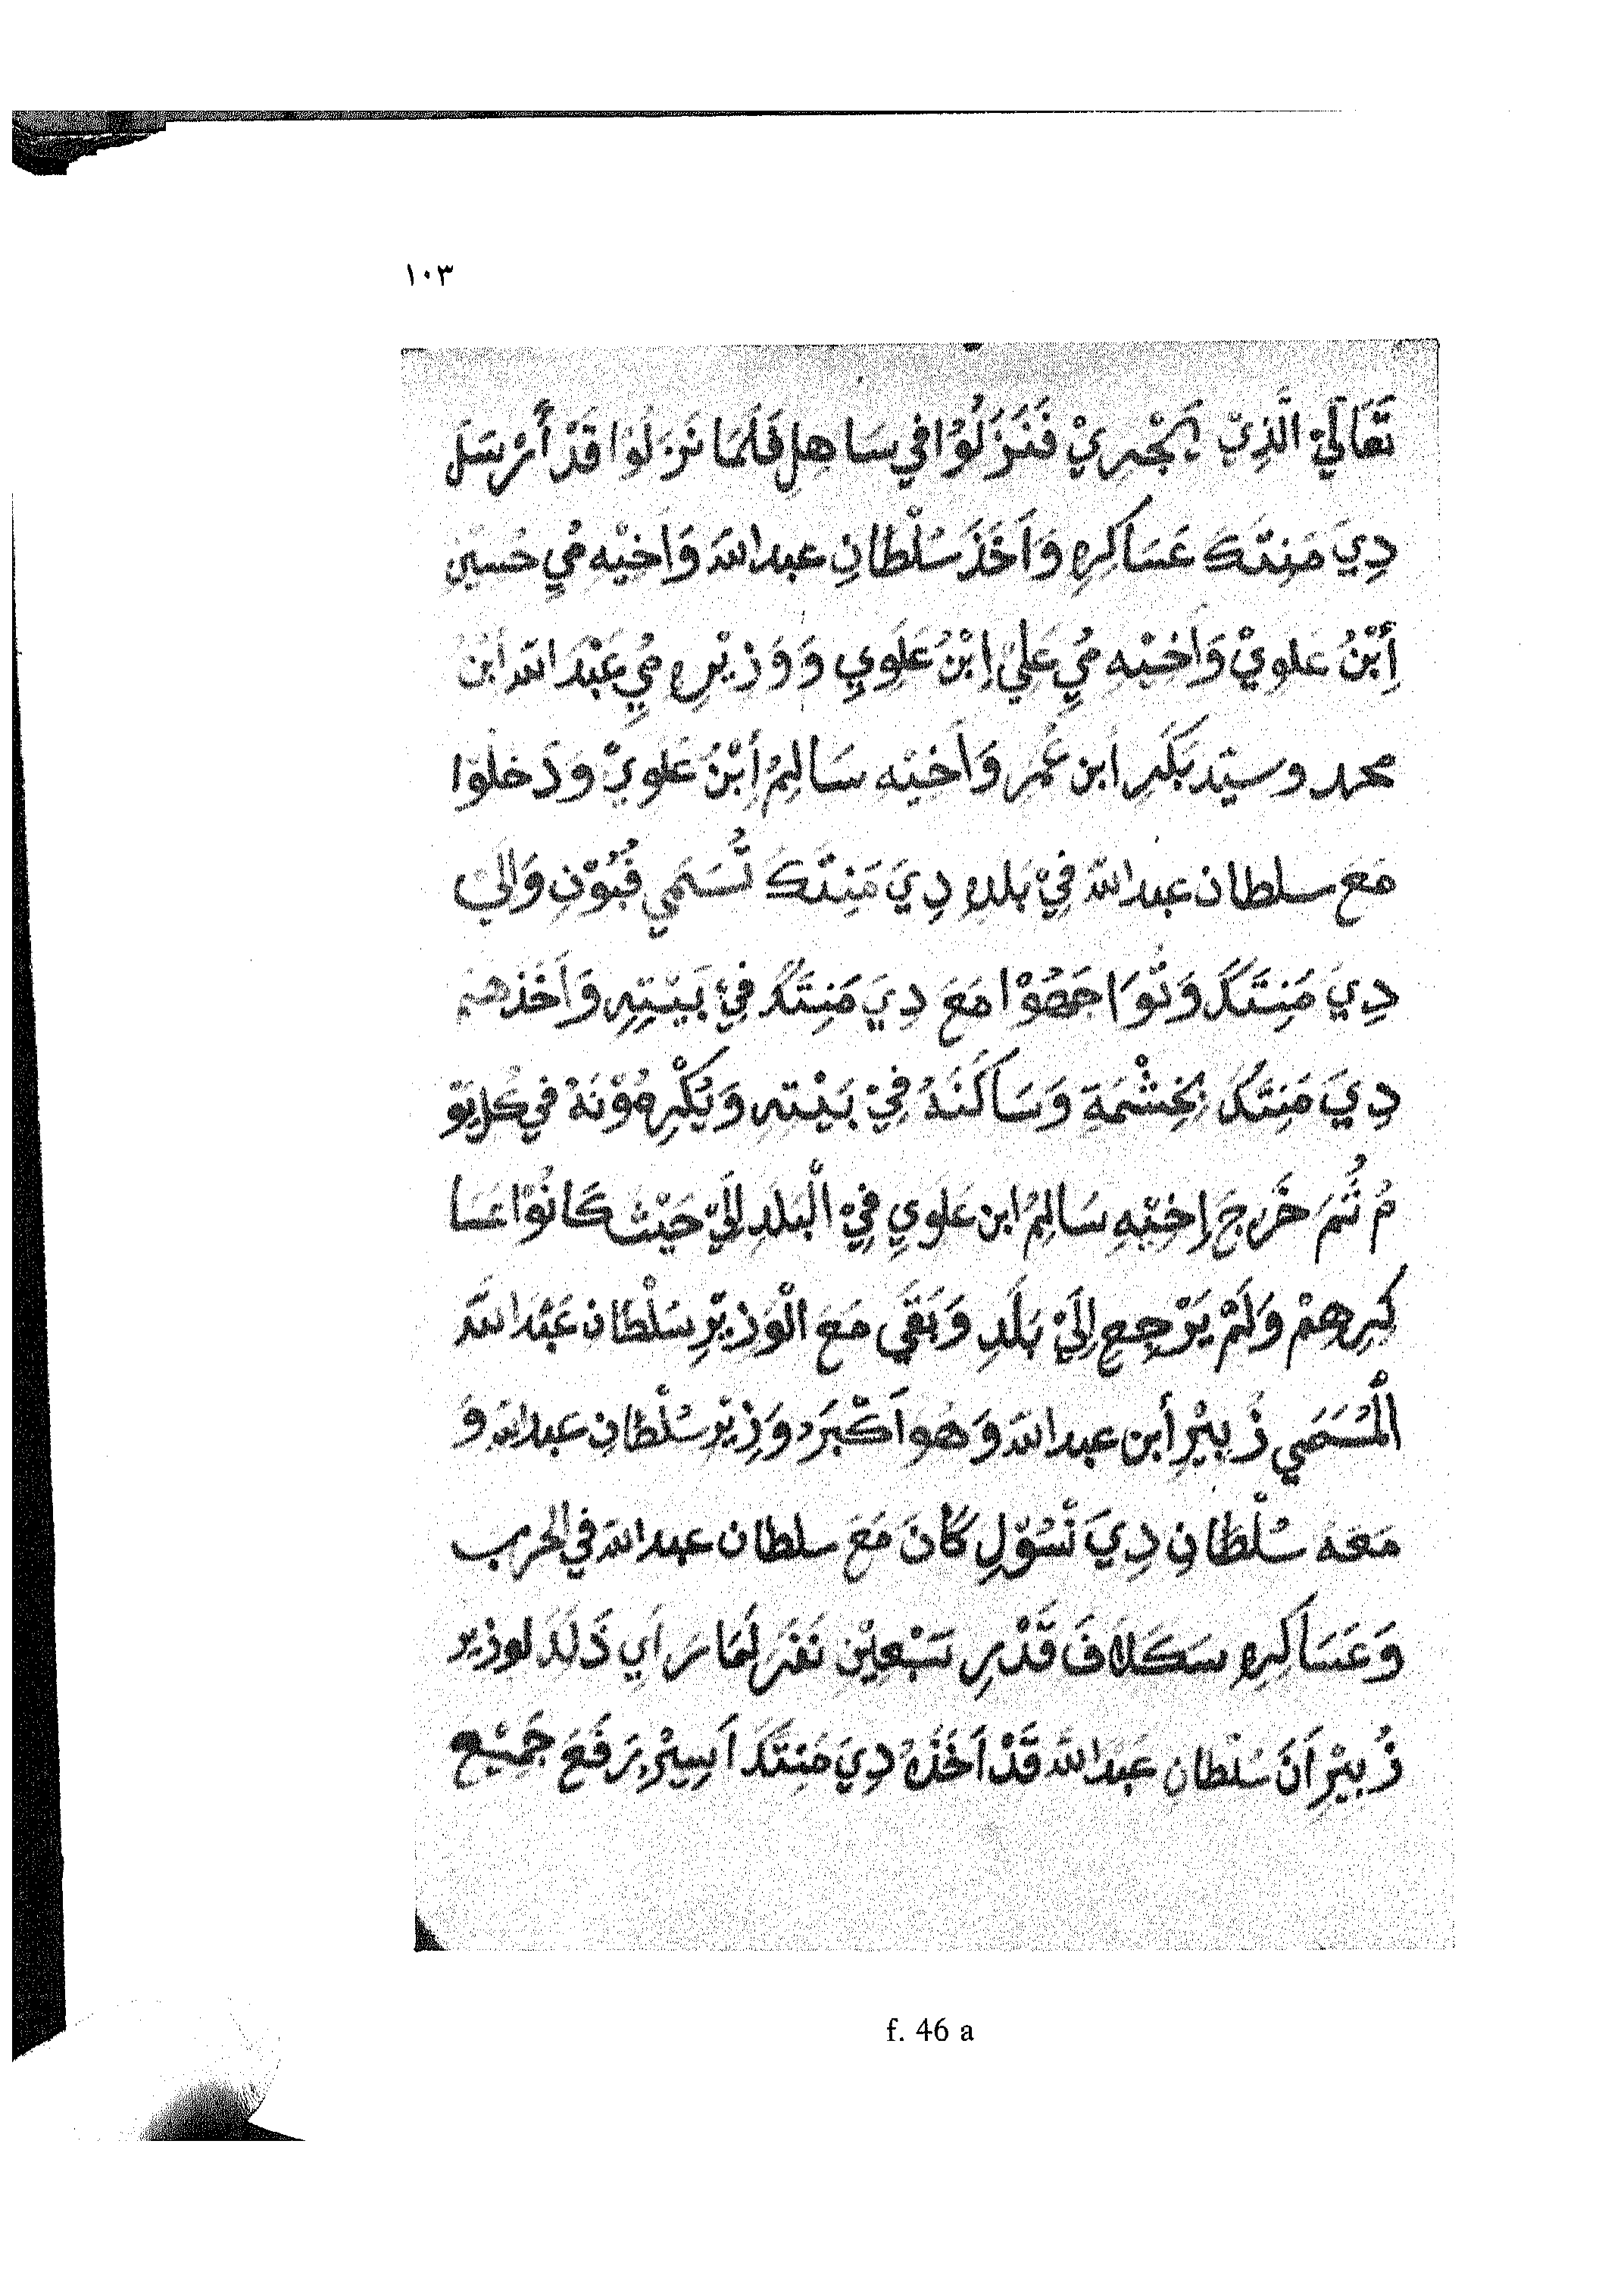 ١٠٣
تَعَالَيْ الَّذِيْ يَجْرِيْ فَنَزَلُوْا في سَاهِلِ فَلَمَا نَزَلُوْا قَدْ أَرْسَلَ
دِيَ مَنِتَكَ عَسَاكِرِهِ وَاَخَذَ سُلْطَانِ عبد الله وَاَخِيْهِ مُيِ حُسَيْنِ
أِبْنُ عَلوِيْ وَاَخِيْهِ مُيِ عَلِيْ إِبْنُ عَلَوِيِ وَوَزِيْرِهِ مُيِ عَبْدَ الله اَبْنُ
محمد وسيّد بَكَرِ أبن عُمَرِ وَاَخِيْهِ سَالِمُ أِبْنُ عَلَوِيْ وَدَخَلُوْا
مَعَ سلطان عبد الله فِيْ بَلَدِهِ دِيَ مَنِتَكَ تُسَمَي قُبُوْنِ وَالَيْ
دِيَ مَنِتَكَ وَتُوَاجَهُوْا مَعَ دِيَ مَنِتَكَ فِيْ بَيْتِهِ وَاَخَذَهُمْ
دِيَ مَنِتَكَ بِحِشْمَةِ وَسَاكَنَهُ فِيْ بَيْتِهِ وَيُكْرِمُوْنَهُ في كُلِ يَوْ
مُ ثُمَ خَرَجَ إِخِيْهِ سَالِمُ ابن عَلَوِيِ فِيْ الْبَلَدِ اِلَيْ حَيْثُ كَانُوْا عَسَا
كِرِهِمْ وَلَمْ يَرْجِعِ اِلَيْ بَلَدِ وَبَقَي مَعَ الْوَزِيْرِ سُلْطَان عَبْد الله
الْمُسَمَي زُبِيْرِ أبن عبد الله وَهُوَ اَكْبَرُ وَزِيْرِ سُلْطَانِ عبد الله وَ
مَعَهُ سُلْطَانِ دِيَ نْسُوْلِ كَانَ مَعَ سلطان عبد الله في الحرب
وَعَسَاكِرِهِ سَكَلَافَ قَدْرِ سَبْعِيْنِ نَفَرَ لَمَا رَاَي ذَلَكَ لوزير
زُبِيْرِ اَنَ سُلْطَانِ عَبْد الله قَدْ اَخَذَهُ دِيَ مَنِتَكَ اَسِيْرِ رَفَعَ جَمِيْعِ
f. 46 a